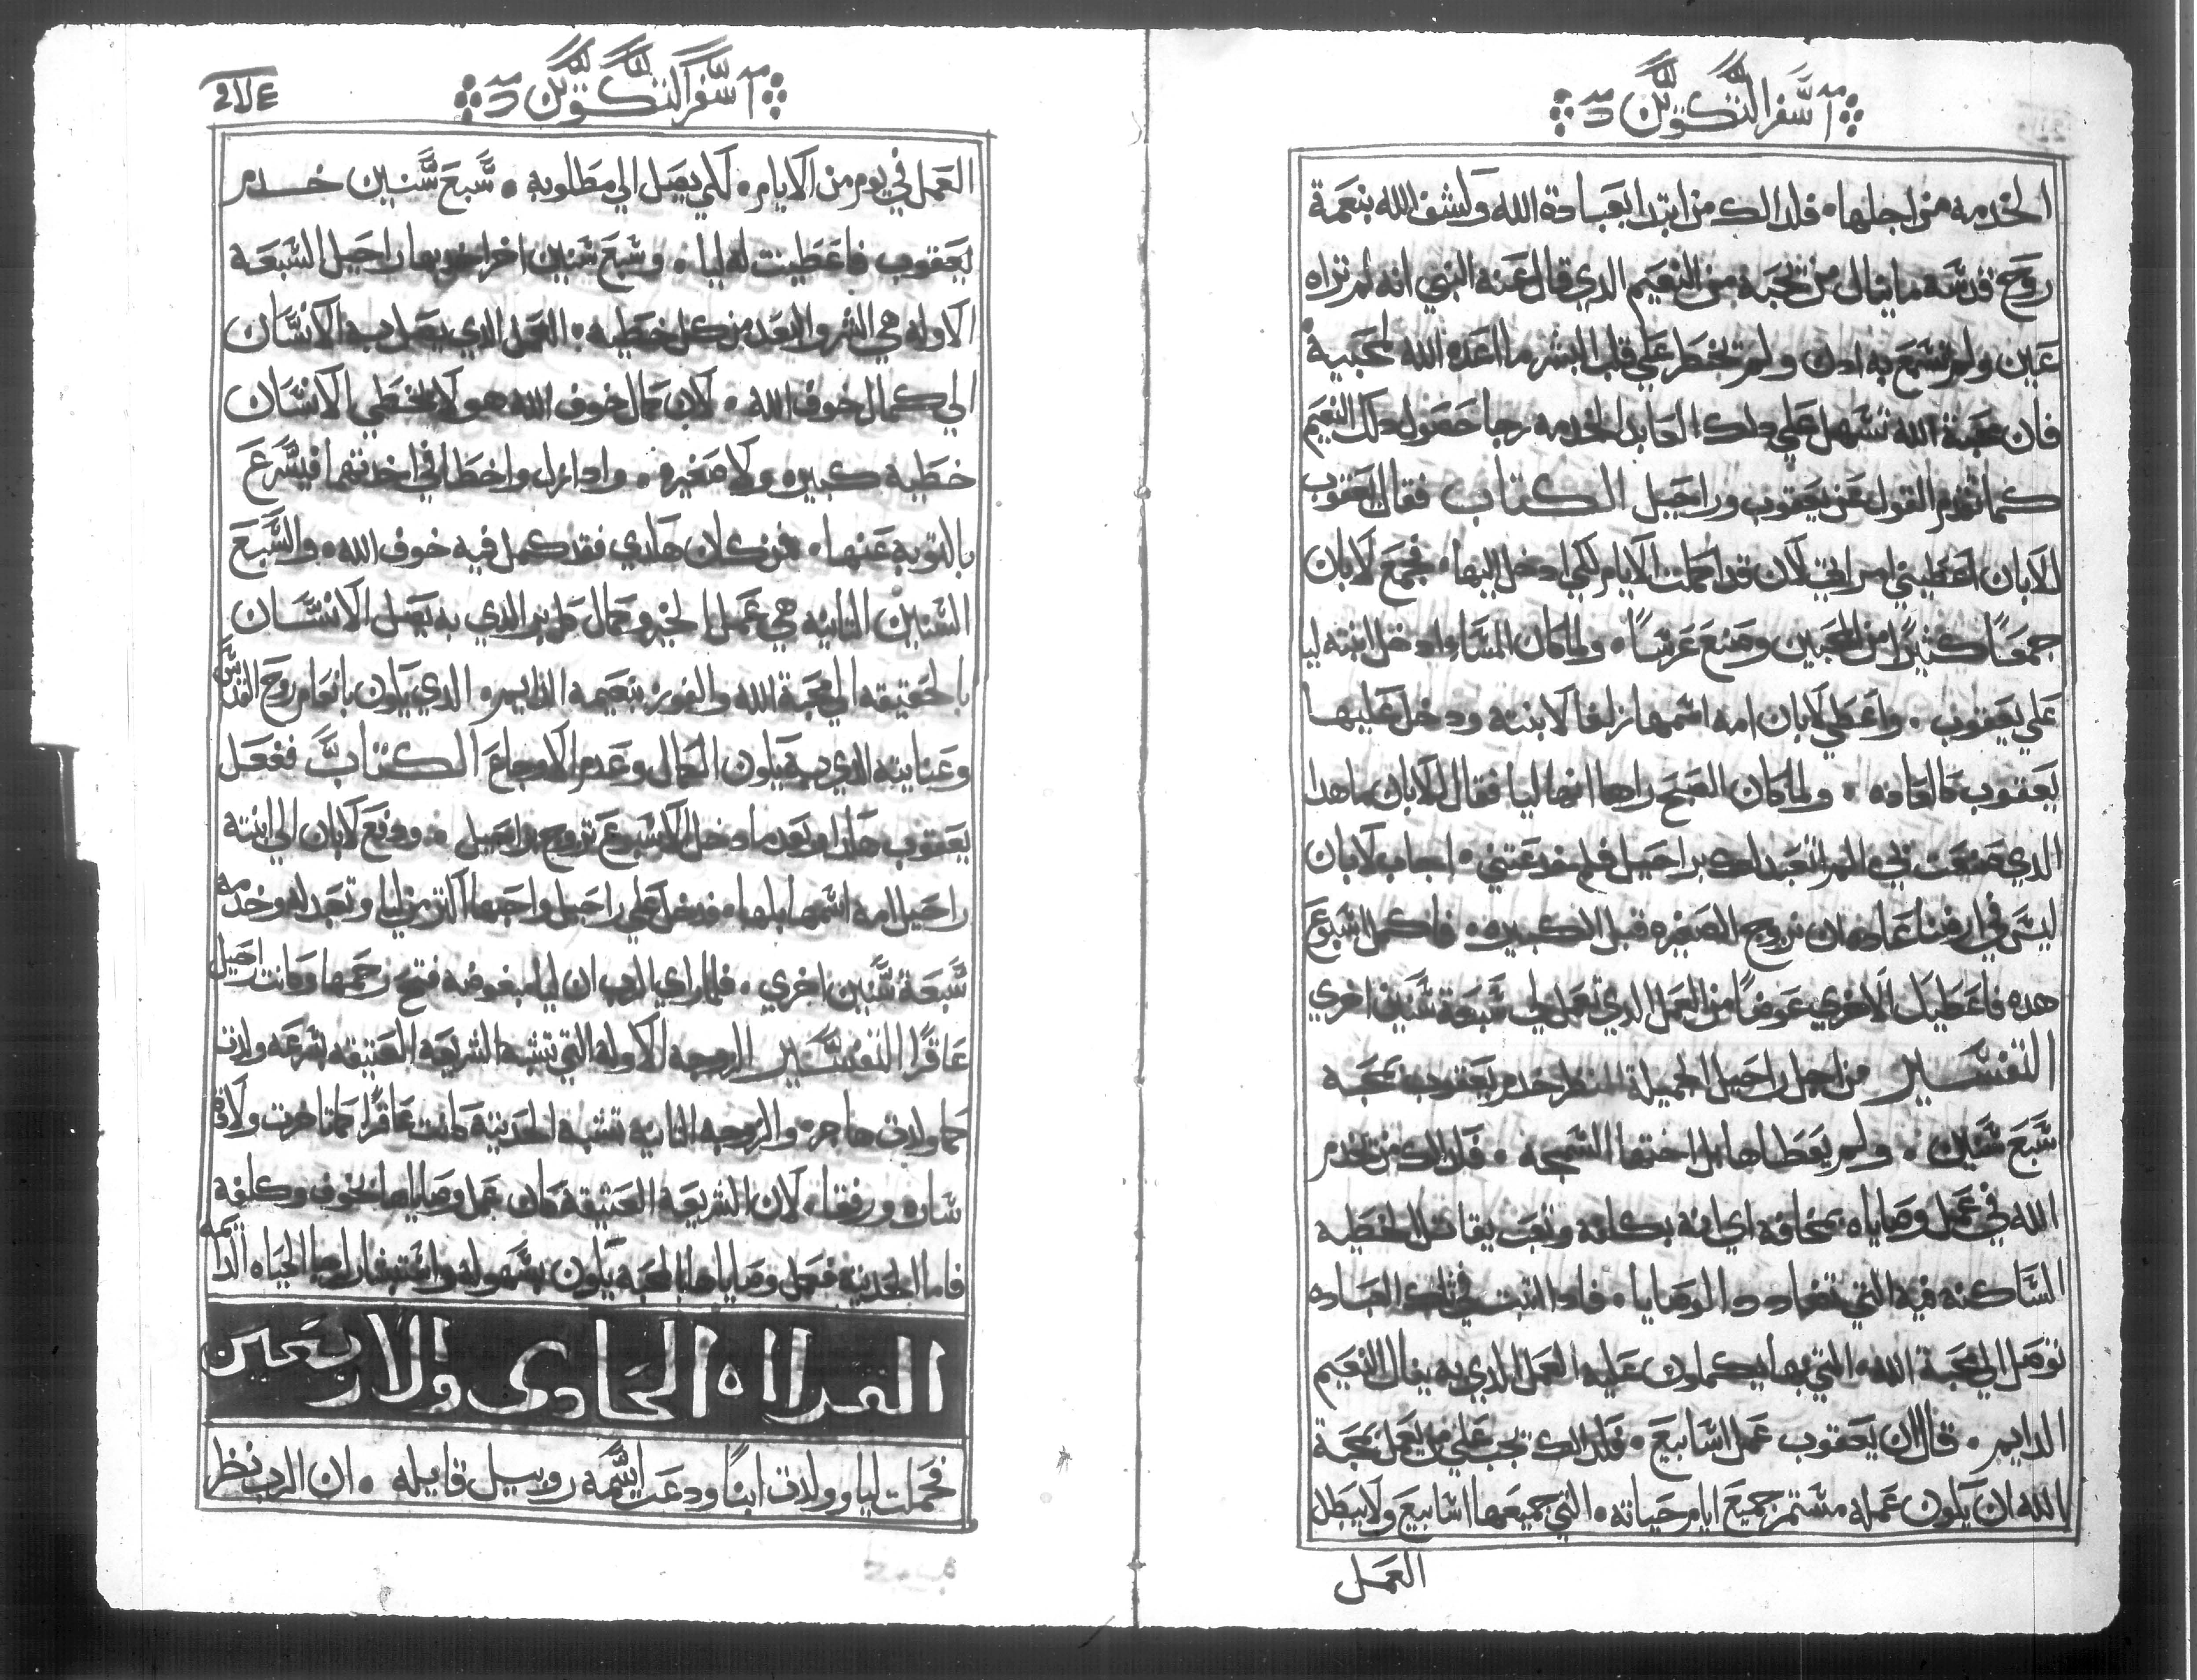 سفر التكوين
الخدمه من اجلها. فلدالك من ابتدا بعبادة الله وكشف الله بنعمة
روح قدسه ما ينال من محبة من النعيم الدي قال عنه النبي انه لم تراه
عين ولم تسمع به ادن ولم تخطر علي قلب البشر ما اعده الله لمحبيه
فان محبة الله تسهل علي دلك العابد الخدمه رجا حصول دلك النعيم
كما تقدم القول عن يعقوب وراحيل الكتاب فقال يعقوب
للابان اعطيني امراتي لان قد اكملت الايام لكي ادخل اليها. فجمع لابان
جمعًا كثيرًا من المحبين وصنع عرسًا. ولما كان المسا وادخل ابنته ليا
علي يعقوب. واعطي لابان امه اسمها زلفا لابنته ودخل عليها
يعقوب كالعاده. ولما كان الصبح راها انها ليا فقال للابان ما هدا
الدي صنعت بي. الم اتعبد لك براحيل فلم خدعتني. اجاب لابان
ليس في ارضنا عاده ان نزوج الصغيره قبل الكبيره. فاكمل اسبوع
هده فاعطيك الاخري عوضًا من العمل الدي تعمل لي سبعة سنين اخري
التفسير من اجل راحيل الجميلة المنظر خدم يعقوب بمحبه
سبع سنين. ولم يعطاها بل اختها السمجه. فلدالك من يخدم
الله في عمل وصاياه بمخافه اي انه بكلفه وتعب يقاتل الخطيه
الساكنه فيه التي تضادد الوصايا. فادا اتبت في تلك العباده
توصل الي محبة الله. التي بها يكملون عليه العمل الدي به ينال النعيم
الدايم. قال ان يعقوب عمل اسابيع. فلدالك يجب علي من يعمل بمحبة
الله ان يكون عمله مستمر جميع ايام حياته. التي جميعها اسابيع ولا يبطل
العمل
سفر التكوين
العمل في يوم من الايام. لكي يصل الي مطلوبه. سبع سنين خدم
يعقوب فاعطيت له ليا. وسبع سنين اخر اخد بها راحيل السبعه
الاوله هي الشر والبعد من كل خطيه. العمل الدي يصل به الانسان
الي كمال خوف الله. لان كمال خوف الله هو لا يخطي الانسان
خطيه كبيره ولا صغيره. وادا زل واخطا في احدتهما فيسرع
بالتوبه عنها. فمن كان هكدي فقد كمل فيه خوف الله. والسبع
السنين التانيه هي عمل الخير وكمال كل بر الدي به يصل الانسان
بالحقيقه الي محبة الله والفوز بنعيمه الدايم. الدي يكون بانعام روح القدس
وعنايته الدي به يكون الكمال وعدم الاوجاع الكتاب ففعل
يعقوب هكدا وبعد ما دخل الاسبوع تزوج براحيل. ودفع لابان الي ابنته
راحيل امه اسمها بلها. فدخل علي راحيل واحبها اكتر من ليا وتعبد له وخدمه
سبعة سنين اخري. فلما راي الرب ان ليا مبغوضه فتح رحمها وكانت راحيل
عاقرًا التفسير الزوجه الاوله التي تشبه الشريعه العتيقه بسرعه ولدت
كما ولدت هاجر. والزوجه التانيه تشبه الحديثه كانت عاقرًا كما تاخرت ولادة
ساره ورفقا. لان الشريعه العتيقه كان عمل وصاياها بخوف وكلفه
فاما الحديثه فعمل وصاياها بالمحبه يكون بسهوله واستبشار لرجا الحياه الدايمه
القراه الحادى والاربعين
فحملت ليا وولدت ابنًا ودعت اسمه روبيل قايله. ان الرب نظر